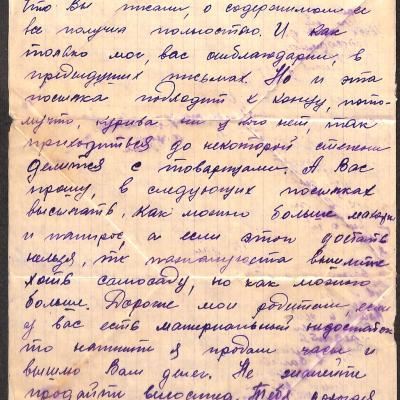 что Вы писали, о содержимом ее
все получил полностью. И как
только мог, вас отблагодарил, в
предыдущих письмах. Но и эта
посылка подходит к концу, пото-
мучто, курива, ни у кого нет, так
приходиться до некоторой степени
делится с товарищами. А Вас
прошу, в следующих посылках
высылать, как можно больше махорки
и папирос, а если этого достать
нельзя, то пожалуйста вышлите
хоть самосаду, но как можно
больше. Дорогие мои родители, если
у вас есть материальный недостаток
то напишите я продам часы и
вышлю Вам денег. Не
продайти велосипед. Тебя